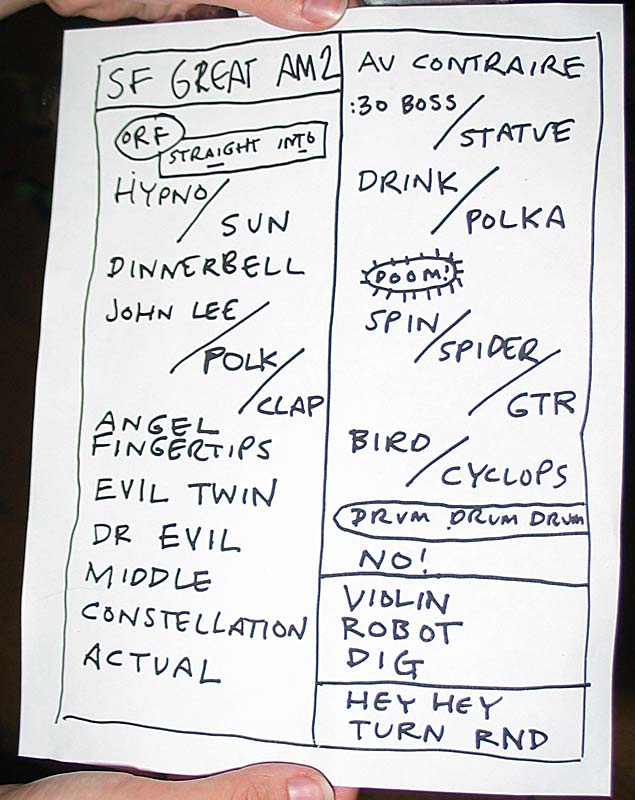 SF GREAT AM2
ORF
STRAIGHT INTO
HYPNO/
SUN
DINNERBELL
JOHN LEE
/POLK/
CLAP
ANGEL
FINGERTIPS
EVIL TWIN
DR EVIL
MIDDLE
CONSTELLATION
ACTUAL
AU CONTRAIRE
:30 BOSS/
STATUE
DRINK/
POLKA
DOOM!
SPIN/
SPIDER/
GTR
BIRD/
CYCLOPS
DRUM DRUM DRUM
NO!
VIOLIN
ROBOT
DIG
HEY HEY
TURN RND